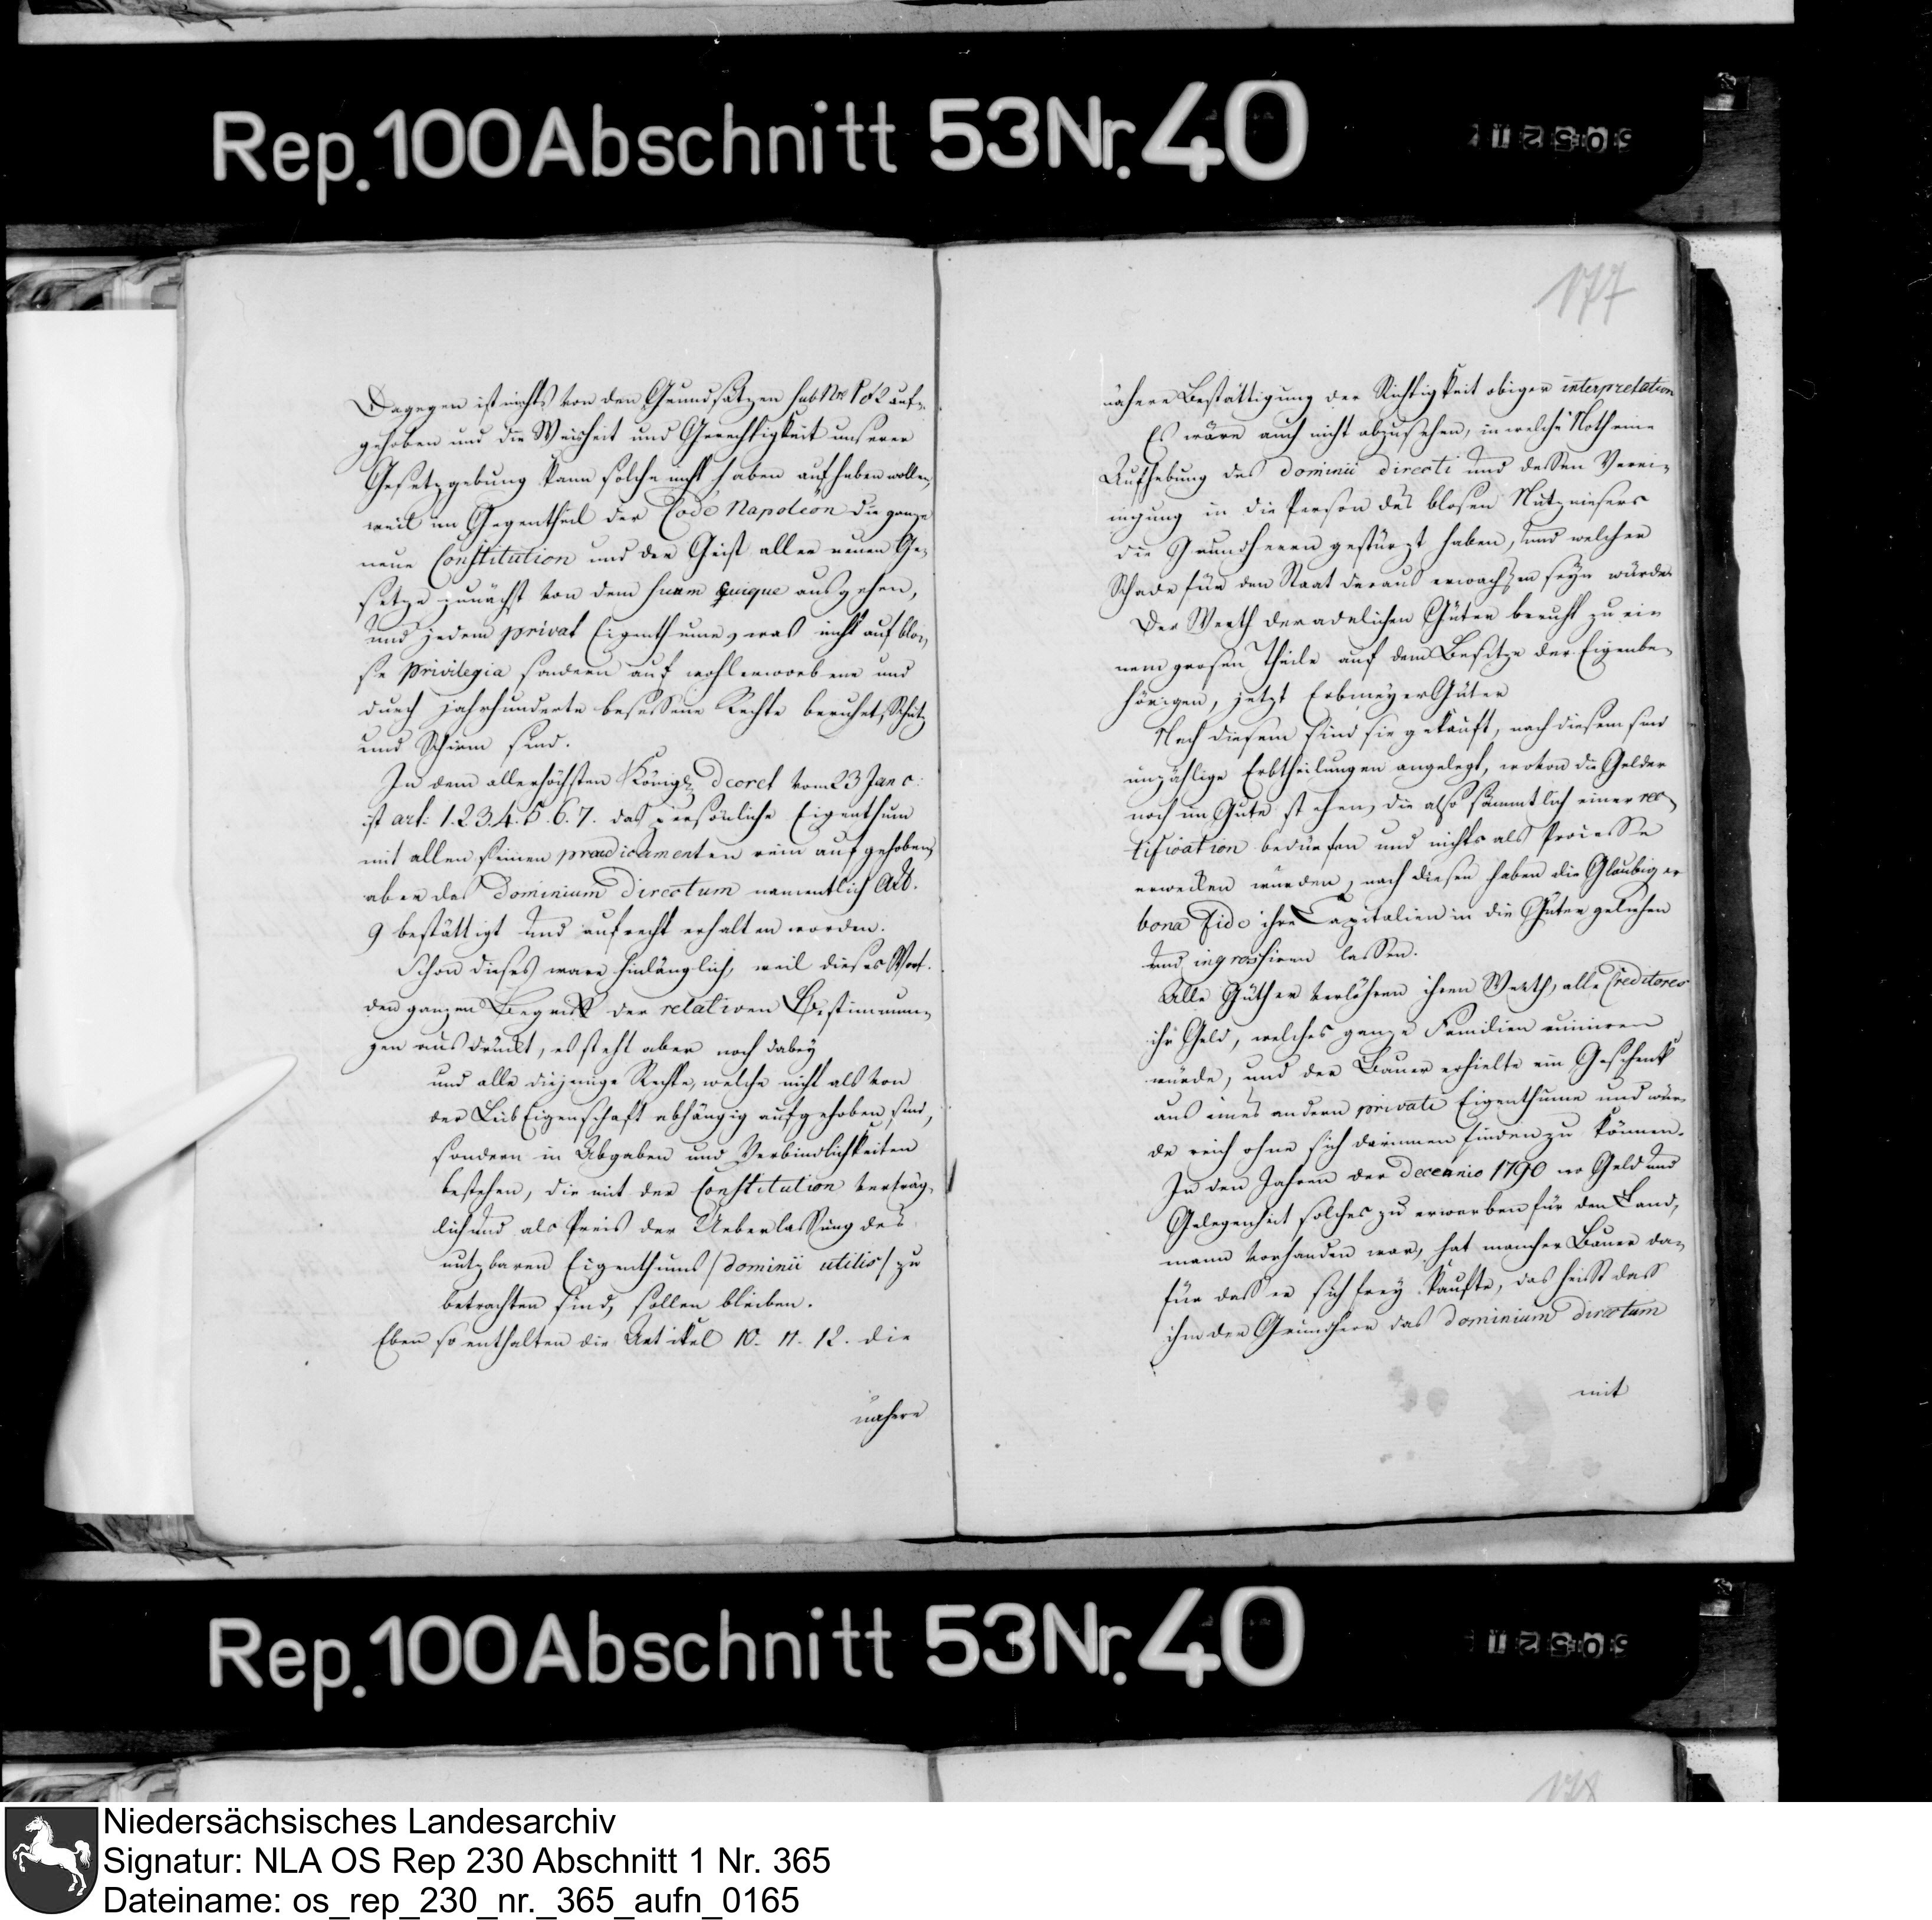 Rep. 100 Abschnitt 53 Nr. 40
Dagegen ist nichts von den Grundsätzen sub Nro 1 & 2 auf-
gehoben und die Weisheit und Gerechtigkeit unserer
Gesetzgebung kann solche nicht haben aufheben wollen,
weil im Gegentheil der Code Napoleon die ganze
neue Constitution und der Geist aller neuen Ge-
setze zunächst von dem suum cuique ausgehen,
und jedem privat Eigenthume, was nicht auf blo-
se privilegia sondern auf wohlerworbene und
durch jahrhunderte besessene Rechte beruhet, Schutz
und Schirm sind.
In dem allerhöchsten Königl. Decret vom 23 Jan c:
ist art: 1. 2. 3. 4. 5. 6. 7. das persönliche Eigenthum
mit allen seinen praedicamenten rein aufgehoben,
aber das Dominium Directum namentlich Art.
9 bestättigt und aufrecht erhalten worden.
Schon dieses ware hinlänglich, weil dieses Wort
den ganzen Begriff der relativen Bestimmun-
gen ausdrückt, es steht aber noch dabey
und alle diejenige Rechte, welche nicht als von
der LeibEigenschaft abhängig aufgehoben sind,
sondern in Abgaben und Verbindlichkeiten
bestehen, die mit der Constitution verträg-
lich und als Preis der Ueberlassung des
nutzbaren Eigenthums /dominii utilis/ zu
betrachten sind, sollen bleiben.
Eben so enthalten die Artikel 10. 11. 12. die
nähere
177
nähere Bestättigung der Richtigkeit obiger interpretation
Es wäre auch nicht abzusehen, in welche Noth eine
Aufhebung des dominii directi und dessen Verei-
nigung in die Person des blosen Nutzniesers
die Grundherrn gestürzt haben, und welcher
Schade für den Staat daraus erwachsen seyn würde.
Der Werth der adelichen Güter beruht zu ei-
nem grosen Theile auf dem Besitze der Eigenbe-
hörigen, jetzt ErbmeyerGüter
Nach diesem sind sie gekauft, nach diesem sind
unzählige Erbtheilungen angelegt, wovon die Gelder
noch im Gute stehen, die also sämmtlich einer rec-
tification bedürfen und nichts als Processe
erwecken würden, nach diesen haben die Glaubiger
bona fide ihre Capitalien in die Güter geliehen
und ingrossiren lassen.
Alle Güther verlöhren ihren Werth, alle Creditores
ihr Geld, welches ganze Familien ruiniren
würde, und der Bauer erhielte ein Geschenk
aus eines andern privat Eigenthume und wür-
de reich ohne sich darinnen finden zu können.
In den Jahren der decennio 1790 wo Geld und
Gelegenheit solches zu erwerben für den Land-
mann vorhanden war, hat mancher Bauer da-
für dass er sich frey kaufte, das heisst dass
ihm der Grundherr das dominium directum
mit
Rep. 100 Abschnitt 53 Nr. 40
178
Niedersächsisches Landesarchiv
Signatur: NLA OS Rep 230 Abschnitt 1 Nr. 365
Dateiname: os_rep_230_nr._365_aufn_0165